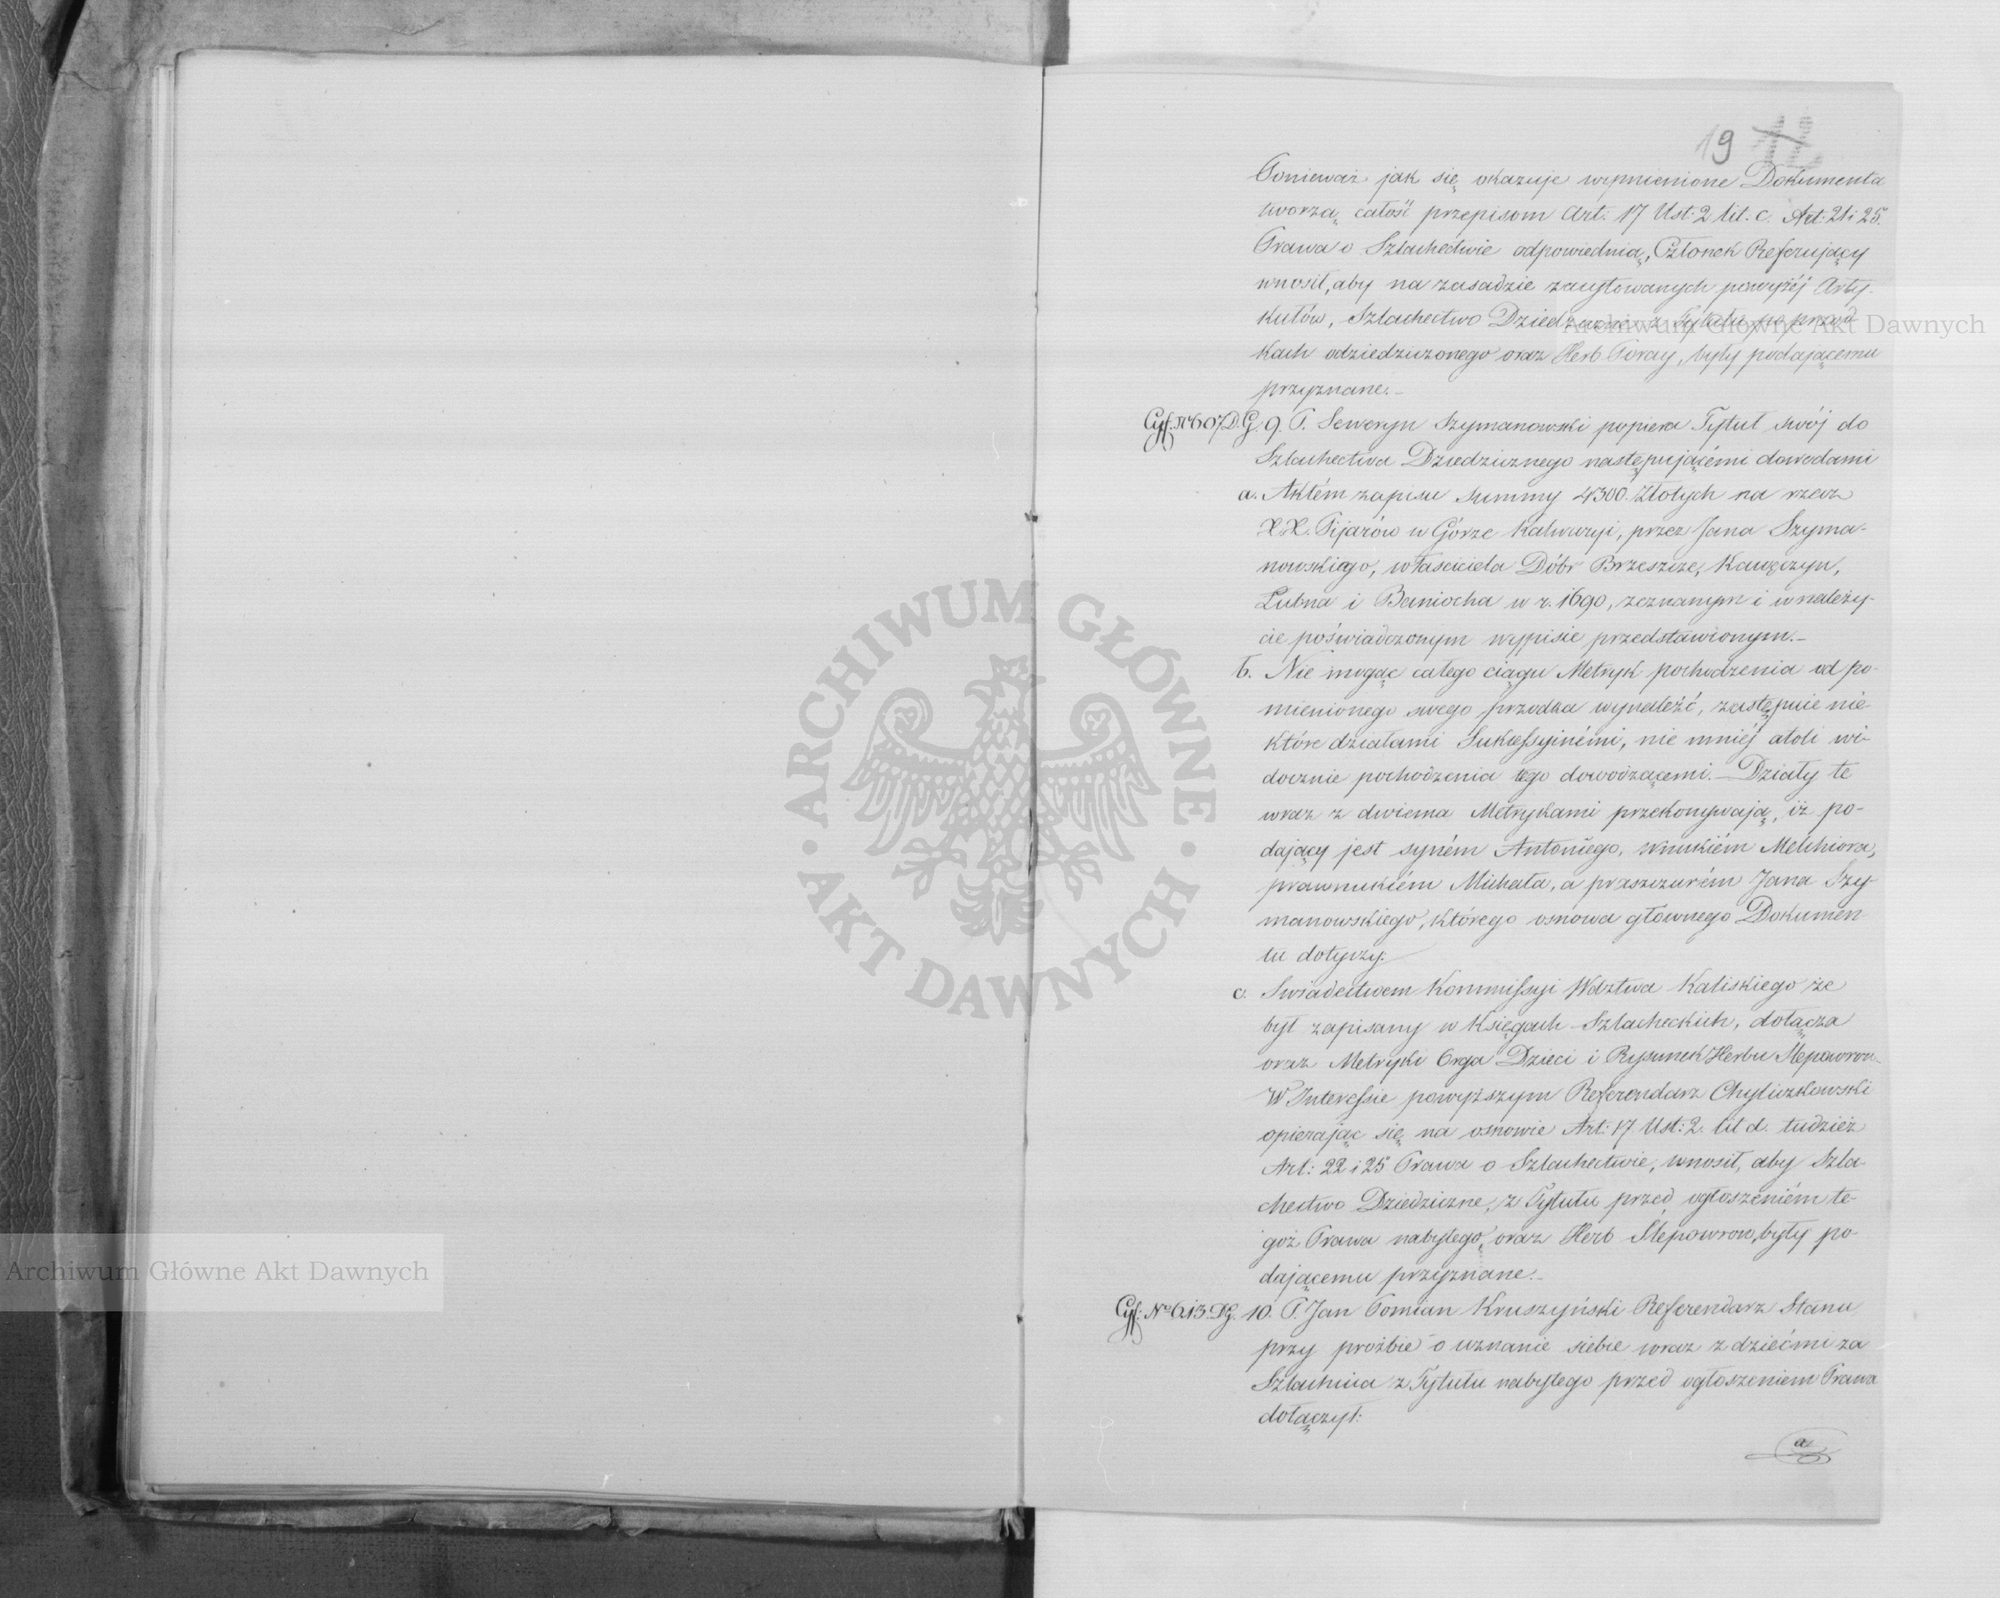 19
Ponieważ jak się okazuje wspmnienione Dokumenta
tworzą całość przepisom Art. 17 Ust: 2 lit. c. Art: 21 i 25.
Prawa o Szlachectwie odpowiednią, Członek Referujący
wnosił, aby na zasadzie zacytowanych powyżéj Arty-
kułów, Szlachectwo Dziedziczne z Tytułu po przod
kach odziedziczonego oraz Herb Poray, były podającemu
przyznane.-
Cyf. No 607 D.G. 9. P. Seweryn Szymanowski popiera Tytuł swój do
Szlachectwa Dziedzicznego następującémi dowodami
a. Aktém zapisu Summy 4300. Złotych na rzecz
X.X. Pijarów w Górze Kalwaryi, przez Jana Szyma-
nowskiego, właściciela Dóbr Brzeszcze, Kawęczyn,
Łubna i Baniocha w r. 1690, zeznanym i w należy-
cie poświadczonym wypisie przedstawionym.-
b. Nie mogąc całego ciągu Metryk pochodzenia od po-
mienionego swego przodka wynaleźć, zastępuie nie-
które działami Sukcessyinémi, nie mniéj atoli wi-
docznie pochodzenia tego dowodzącemi.- Działy te
wraz z dwiema Metrykami przekonywają, iż po-
dający jest syném Antoniego, wnukiém Melchiora,
prawnukiém Michała, a praszczurém Jana Szy-
manowskiego, którego osnowa głównego Dokumen-
tu dotyczy.
c. Świadectwem Kommissyi Wdztwa Kaliskiego że
był zapisany w Księgach Szlacheckich, dołącza
oraz Metryki 6rga Dzieci i Rysunek Herbu Ślepowron.-
W Interessie powyższym Referendarz Chyliczkowski
opierając się na osnowie Art: 17 Ust: 2. lit d. tudzież
Art: 22 i 25 Prawa o Szlachectwie, wnosił, aby Szla-
chectwo Dziedziczne, z Tytułu przed ogłoszeniém te-
goż Prawa nabytego, oraz Herb Ślepowron, były po-
dającemu przyznane.-
Cyf: No 613. DG. 10. P. Jan Pomian Kruszyński Referendarz Stanu
przy prośbie o uznanie siebie wraz z dziećmi za
Szlachcica z Tytułu nabytego przed ogłoszeniem Prawa
dołączył:
a
Archiwum Główne Akt Dawnych
Archiwum Główne Akt Dawnych
ARCHIWUM GŁÓWNE · AKT DAWNYCH ·